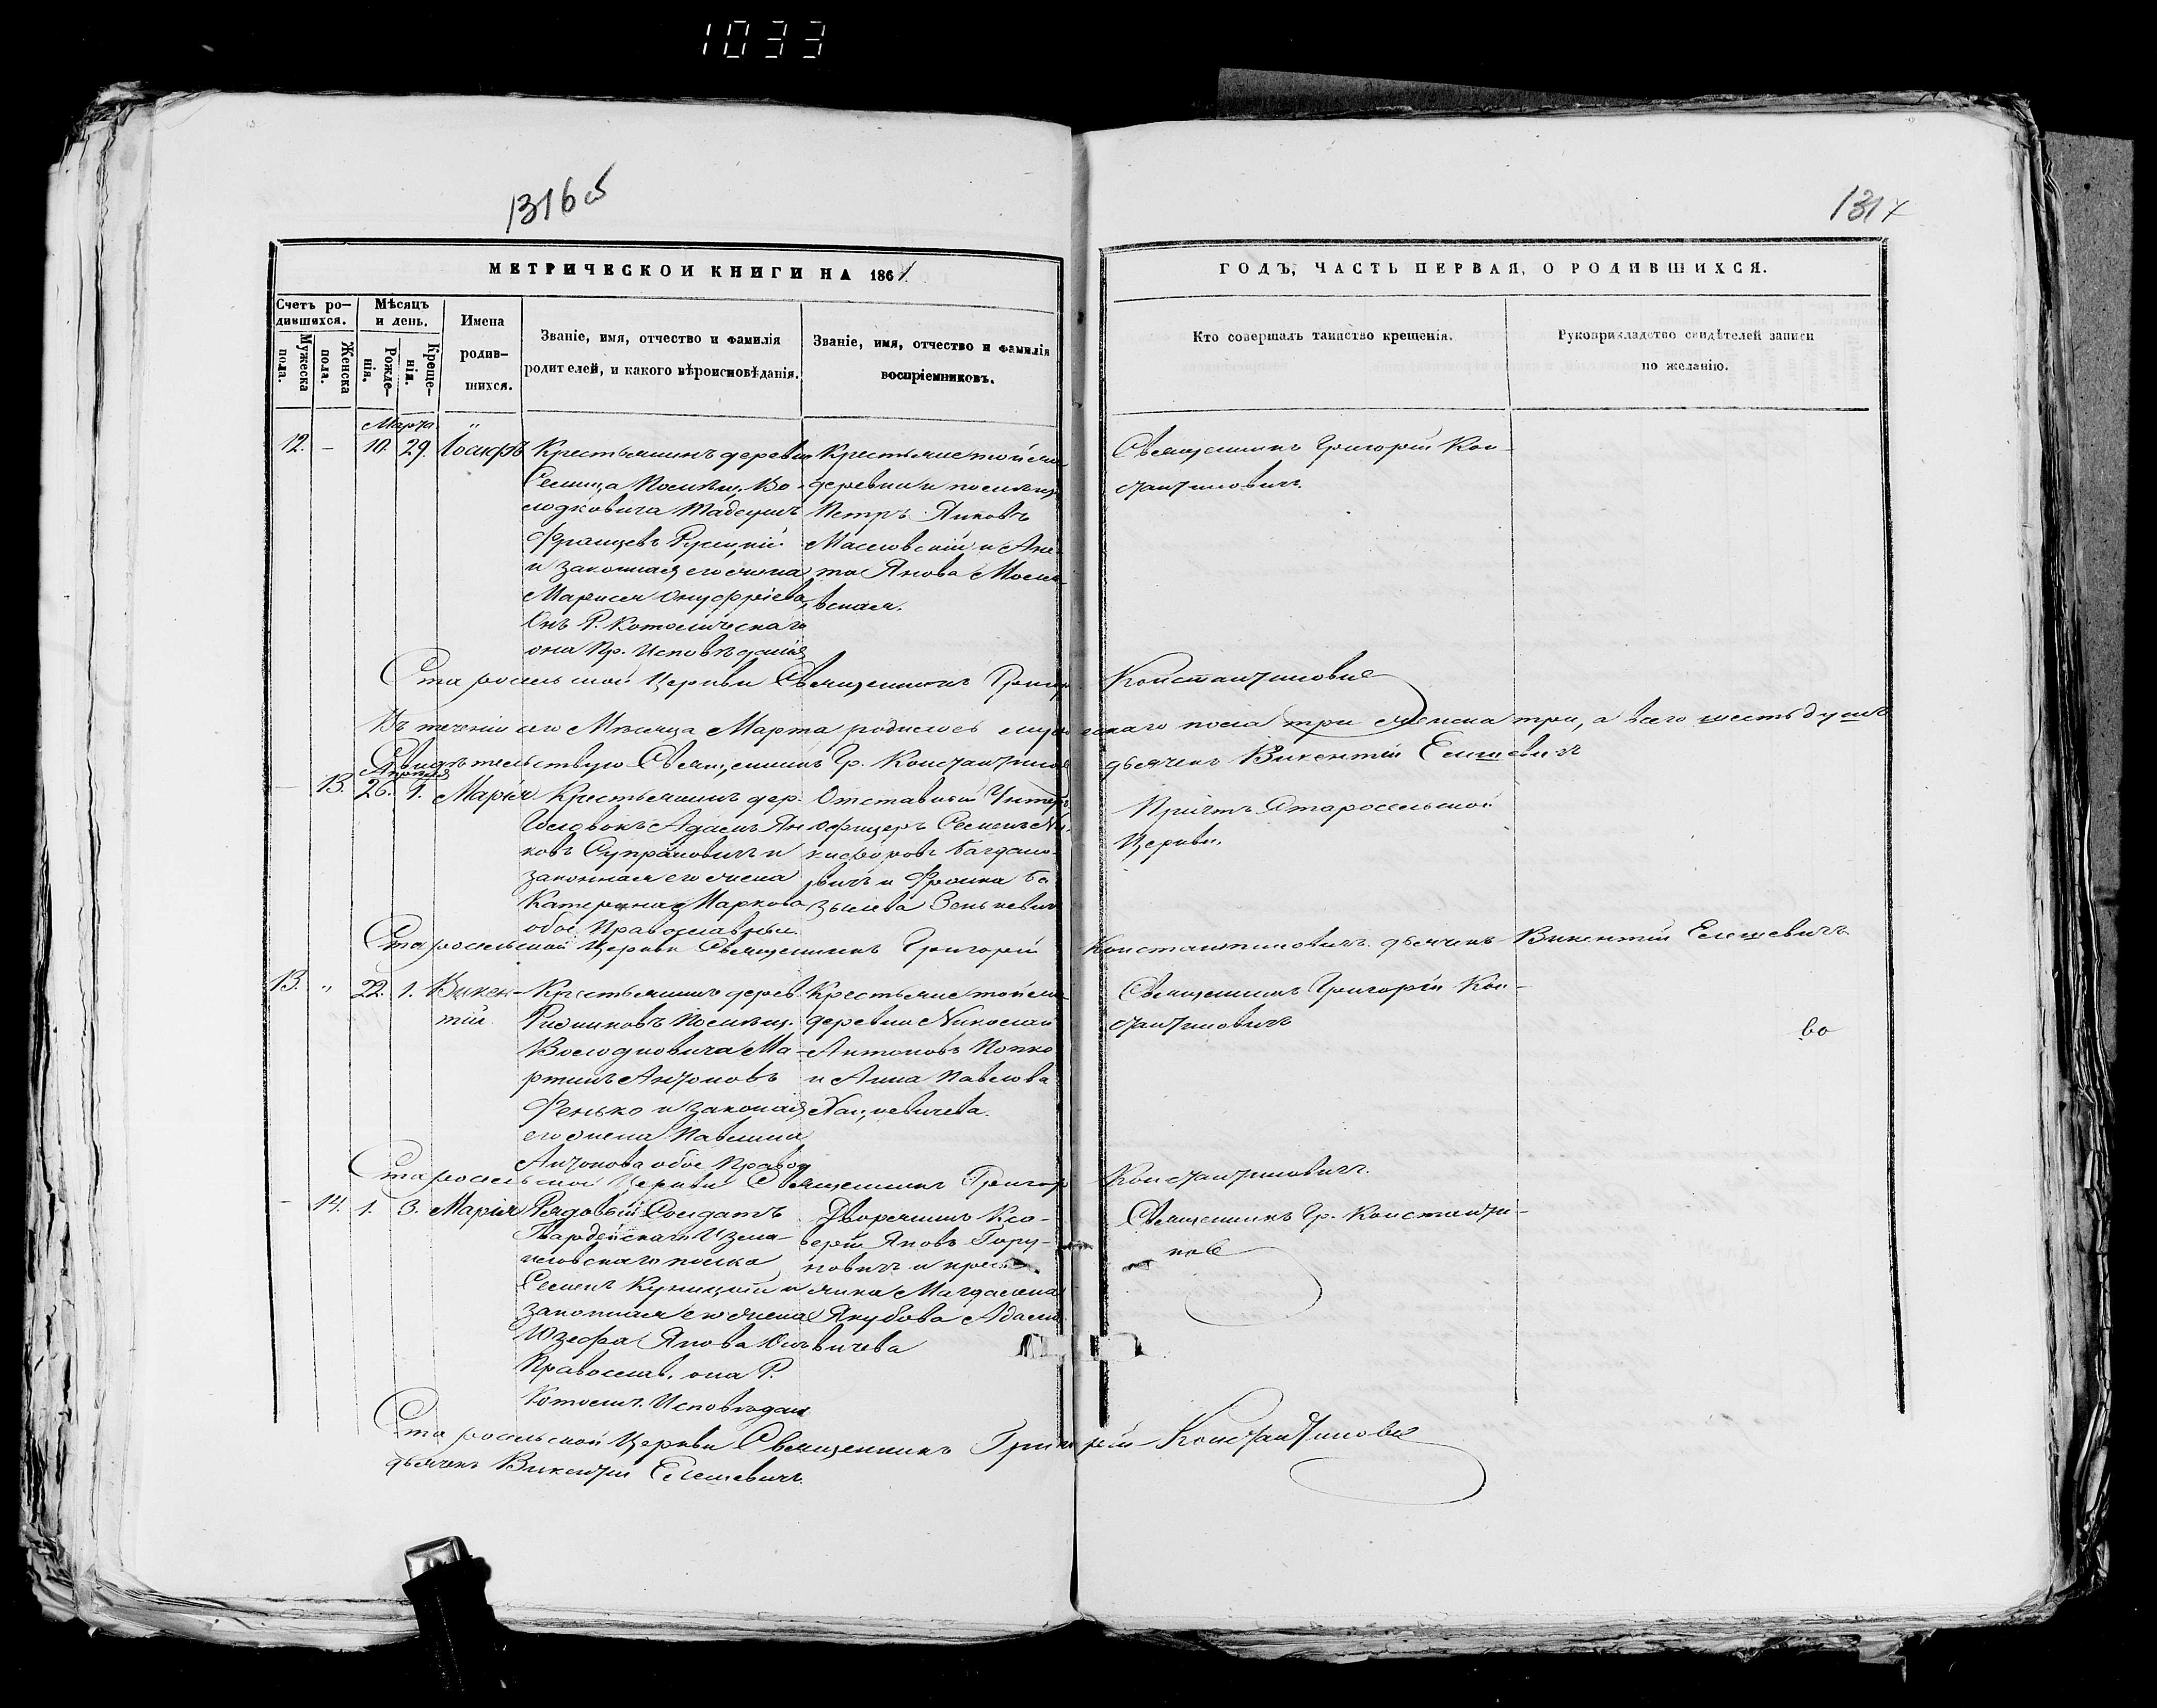 1033
1316 об
1317
МЕТРИЧЕСКОЙ КНИГИ НА 1861
ГОДЪ, ЧАСТЬ ПЕРВАЯ, О РОДИВШИХСЯ.
Счетъ ро-
дившихся.
Мужеска
пола.
Женска
пола.
Мѣсяцъ
и день.
Рожде-
нія.
Креще-
нія.
Имена
родив-
шихся.
Званіе, имя, отчество и фамилія
родителей, и какого вѣроисповѣданія.
Званіе, имя, отчество и фамилія
воспріемниковъ.
Кто совершалъ таинство крещенія.
Рукоприкладство свидѣтелей записи
по желанію.
Марта
12. - 10. 29. Іосифъ
Крестьянинъ деревни
Селища Помѣщ. Во-
лодковича Тадеушъ
Францевъ
и законная его жена
Марися Онуфріева
Онъ Р. Католическаго
она Пр. Исповѣданія
Крестьяне той же
деревни и помѣщ.
Петръ Янковъ
и Ане-
та Янова
вская.
Священникъ Григорій Кон-
стантиновичъ
Старосельской Церкви Священникъ Григор Константинович
Въ теченіи сего Мѣсяца Марта родилось мужескаго пола три женска три, а всего шесть душъ
Свидѣтельствую Священникъ Гр. Константинов дьячекъ Викентій Елешевичъ
Апрѣля
- 13. 26. 1. Марія
Крестьянинъ дер.
Адамъ Ян-
ковъ Супрановичъ и
законная его жена
Катерина Маркова
обое Православные
Отставной Унтеръ
Офицеръ Семенъ Ни-
кифоровъ Багдано-
вичъ и Фролка Ба-
зылева Зенькевич
Причтъ Старосельской
Церкви
Старосельской Церкви Священникъ Григорій Константиновичъ дьячекъ Викентій Елешевичъ
13. " 22. 1. Викен-
тій
Крестьянинъ дерев.
Помѣщ.
Володковича Ма-
ртинъ Антоновъ
Фенько и законная
его жена Павлина
Антонова обое Правос
Крестьяне той же
деревни Николай
Антоновъ Попко
и Анна Павлова
Хацкевичева.
Священникъ Григорій Кон-
стантиновичъ
во
Старосельской Церкви Священникъ Григор Константиновичъ.
- 14. 1. 3. Марія
Рядовой Солдатъ
Гвардейскаго Изма-
иловскаго полка
Семенъ Куницкій и
законная его жена
Юзефа Янова Онъ
Православ. она Р.
Католич. Исповѣдан
Дворянинъ Кса-
верій Яновъ Гору-
новичъ и крес
янка Магдалена
Якубова Адам
вичева
Священникъ Гр. Константи-
нов
Старосельской Церкви Священникъ Григорій Константинович
дьячекъ Викентій Елешевичъ.